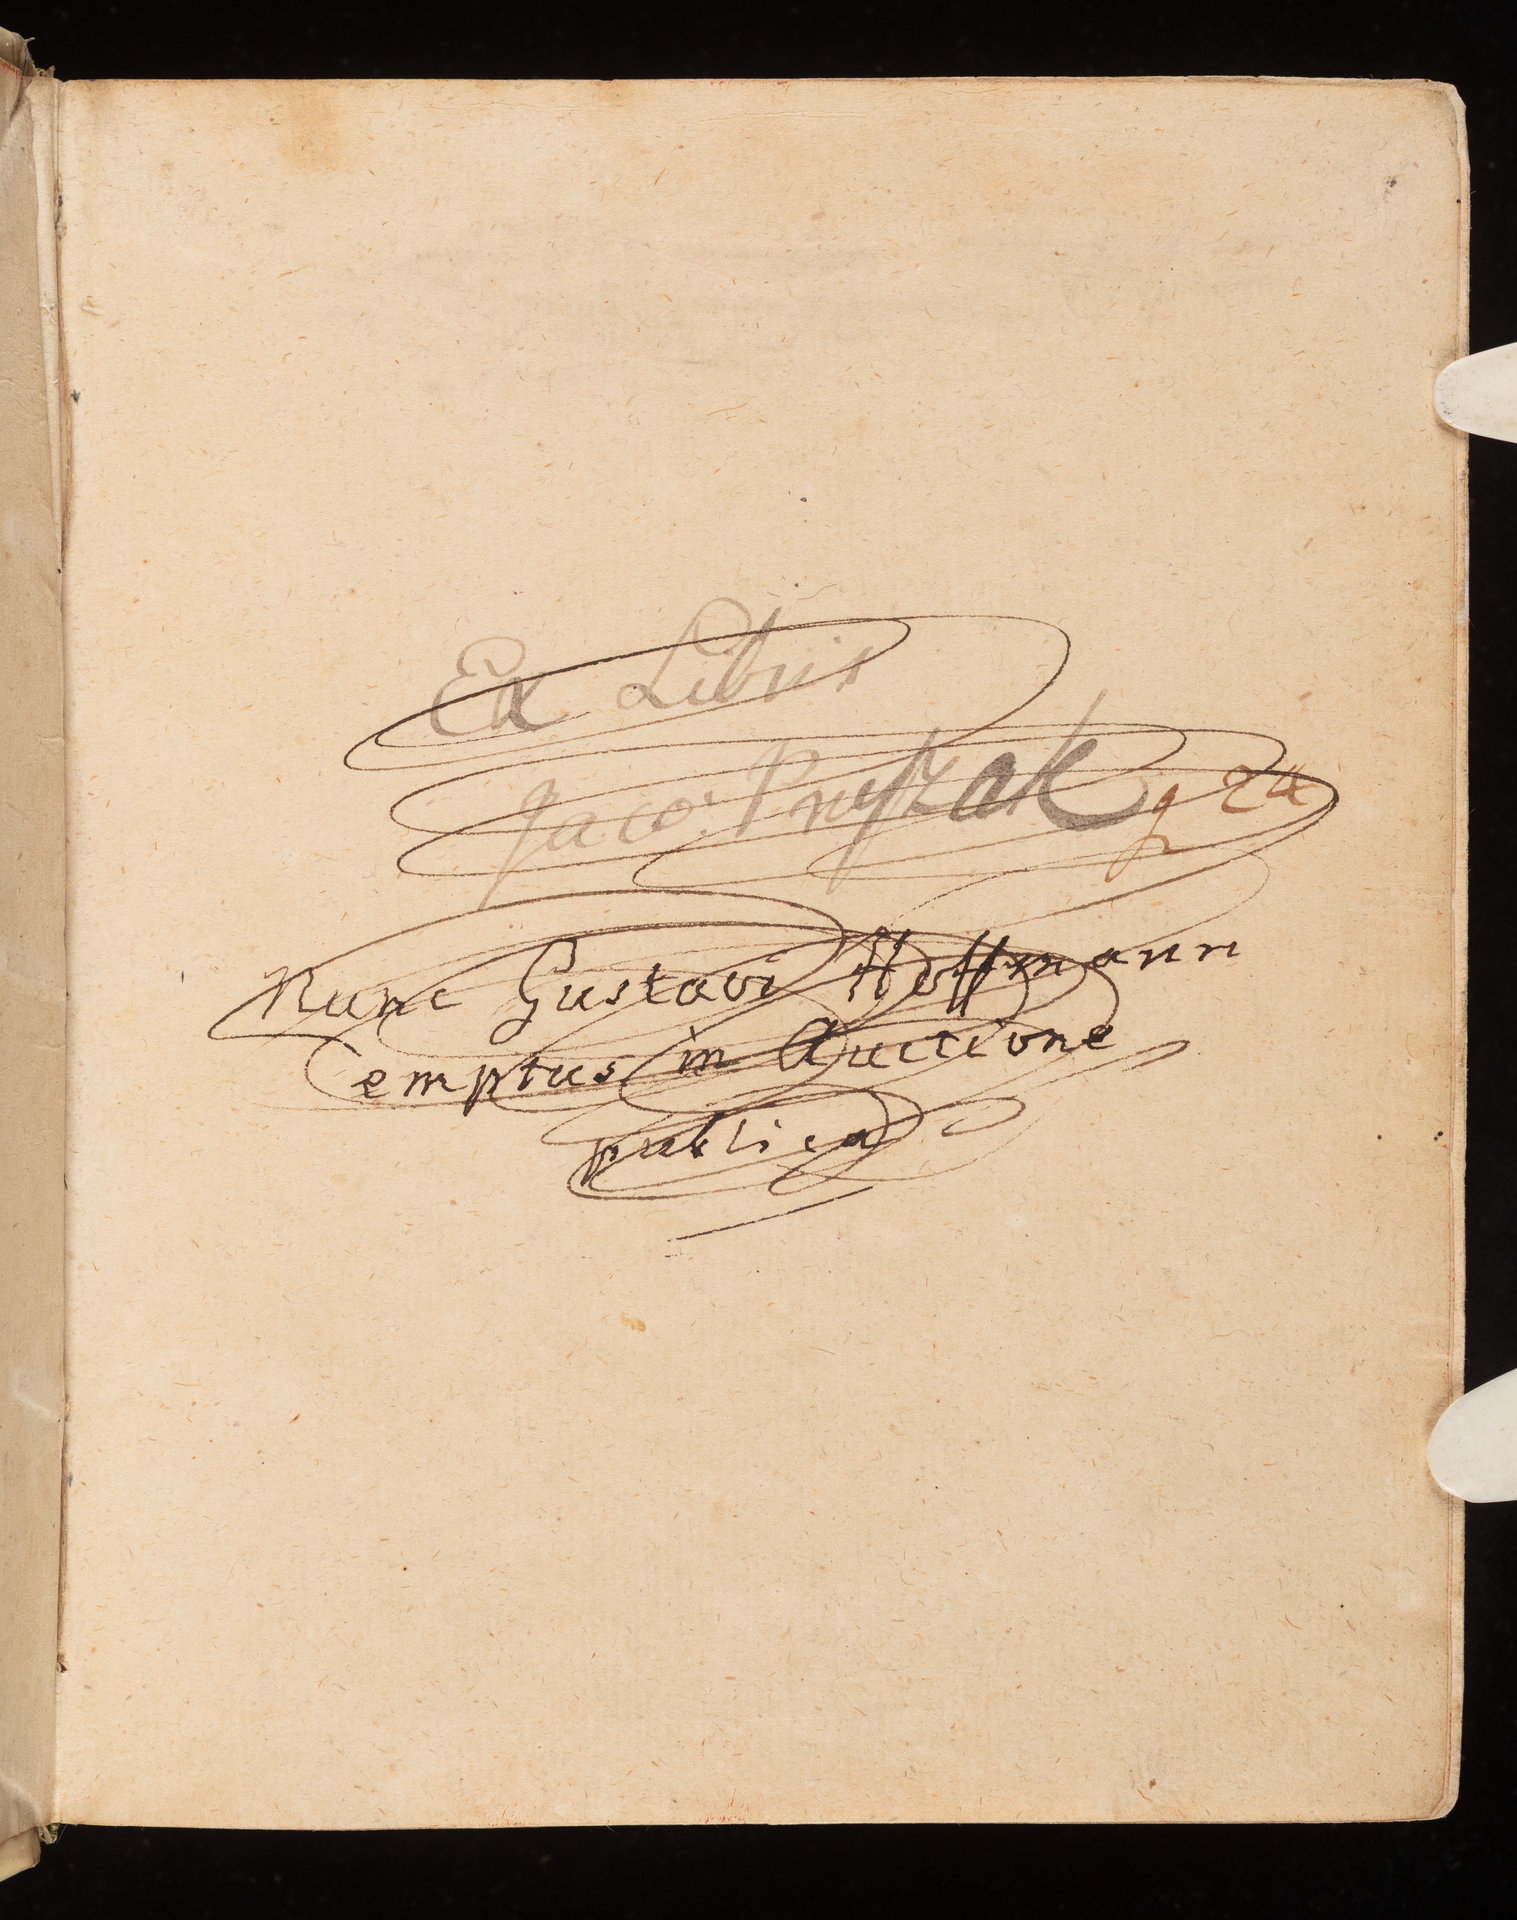 Ex Libris
Jaco: Pryszak g 24
Nunc Gustavi Hoffmann
emptus in Auctione
publica